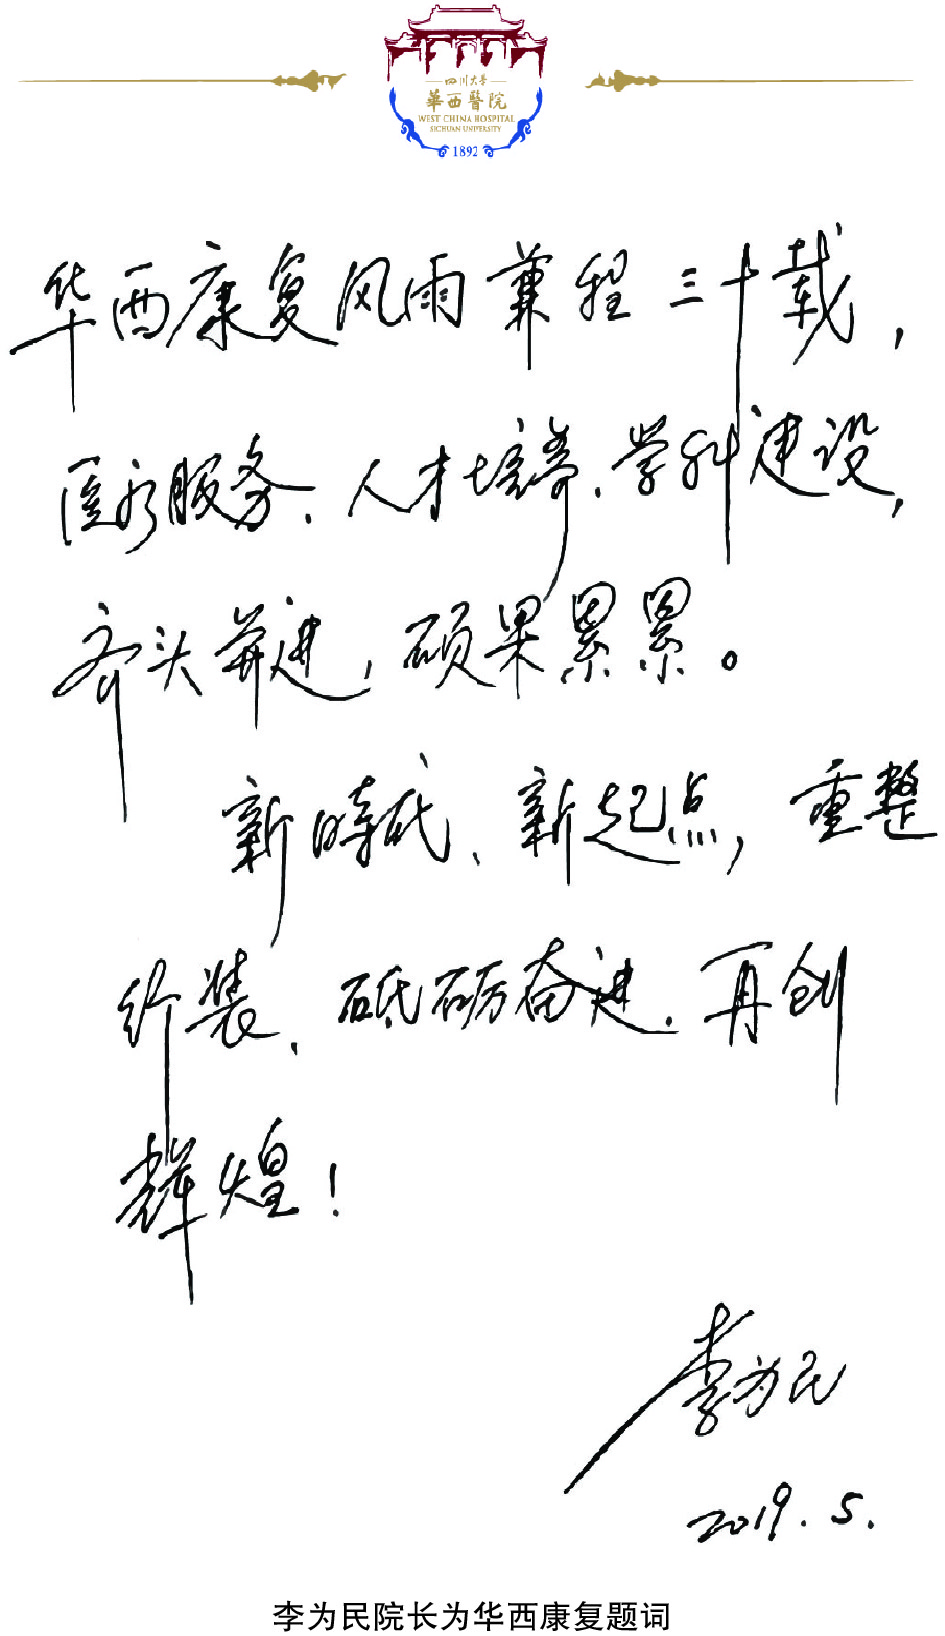 四川大学
華西醫院
WEST CHINA HOSPITAL
SICHUAN UNIVERSITY
1892
华西康复风雨兼程三十载，
医疗服务、人才培养、学科建设，
齐头并进，硕果累累。
新時代、新起点，重整
行装、砥砺奋进、再创
辉煌！
李为民
2019.5.
李为民院长为华西康复题词